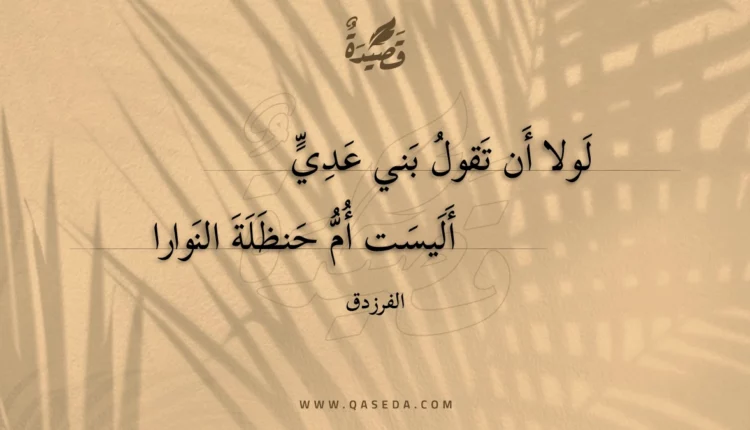 قَصِيْدَةٌ
لَولا أَن تَقولُ بَني عَدِيٍّ
أَلَيسَت أُمُّ حَنظَلَةَ النَوارا
الفرزدق
WWW.QASEDA.COM